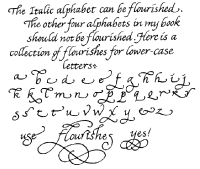 The Italic alphabet can be flourished.
The other four alphabets in my book
should not be flourished. Here is a
collection of flourishes for lower-case
letters:
a b c d e e f g h h i j
k k l m n o p p q e r r
s s t t u v w x y & z
use flourishes yes!